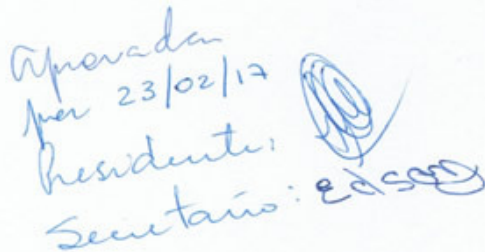 aprovada
por 23/02/17
Presidente:
Secretario: Edson